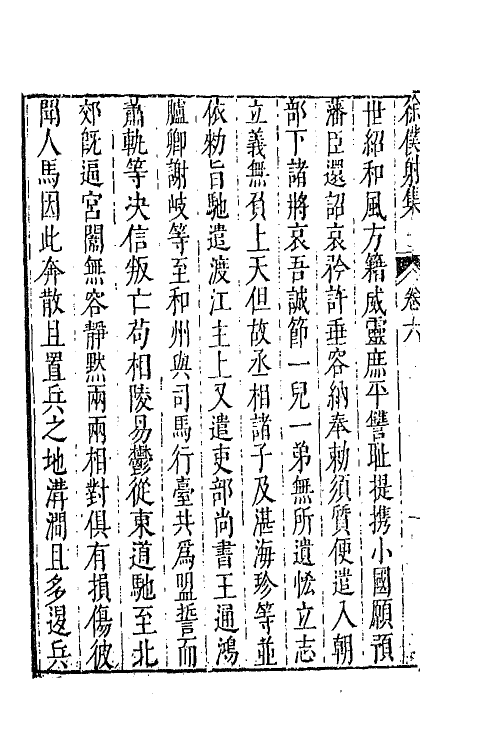 徐僕射集 卷六
世紹和風方籍威靈庶平讐耻提携小國願預
藩臣還詔哀矜許垂容納奉勅須質便遣入朝
部下諸將哀吾誠節一兒一弟無所遺恡立志
立義無負上天但故丞相諸子及湛海珍等並
依勅旨馳遣渡江主上又遣吏部尚書王通鴻
臚卿謝岐等至和州與司馬行臺共爲盟誓而
蕭軌等决信叛亡苟相陵易鬱從東道馳至北
郊旣逼宮闕無容靜默兩兩相對俱有損傷彼
聞人馬因此奔散且置兵之地溝澗且多邊兵